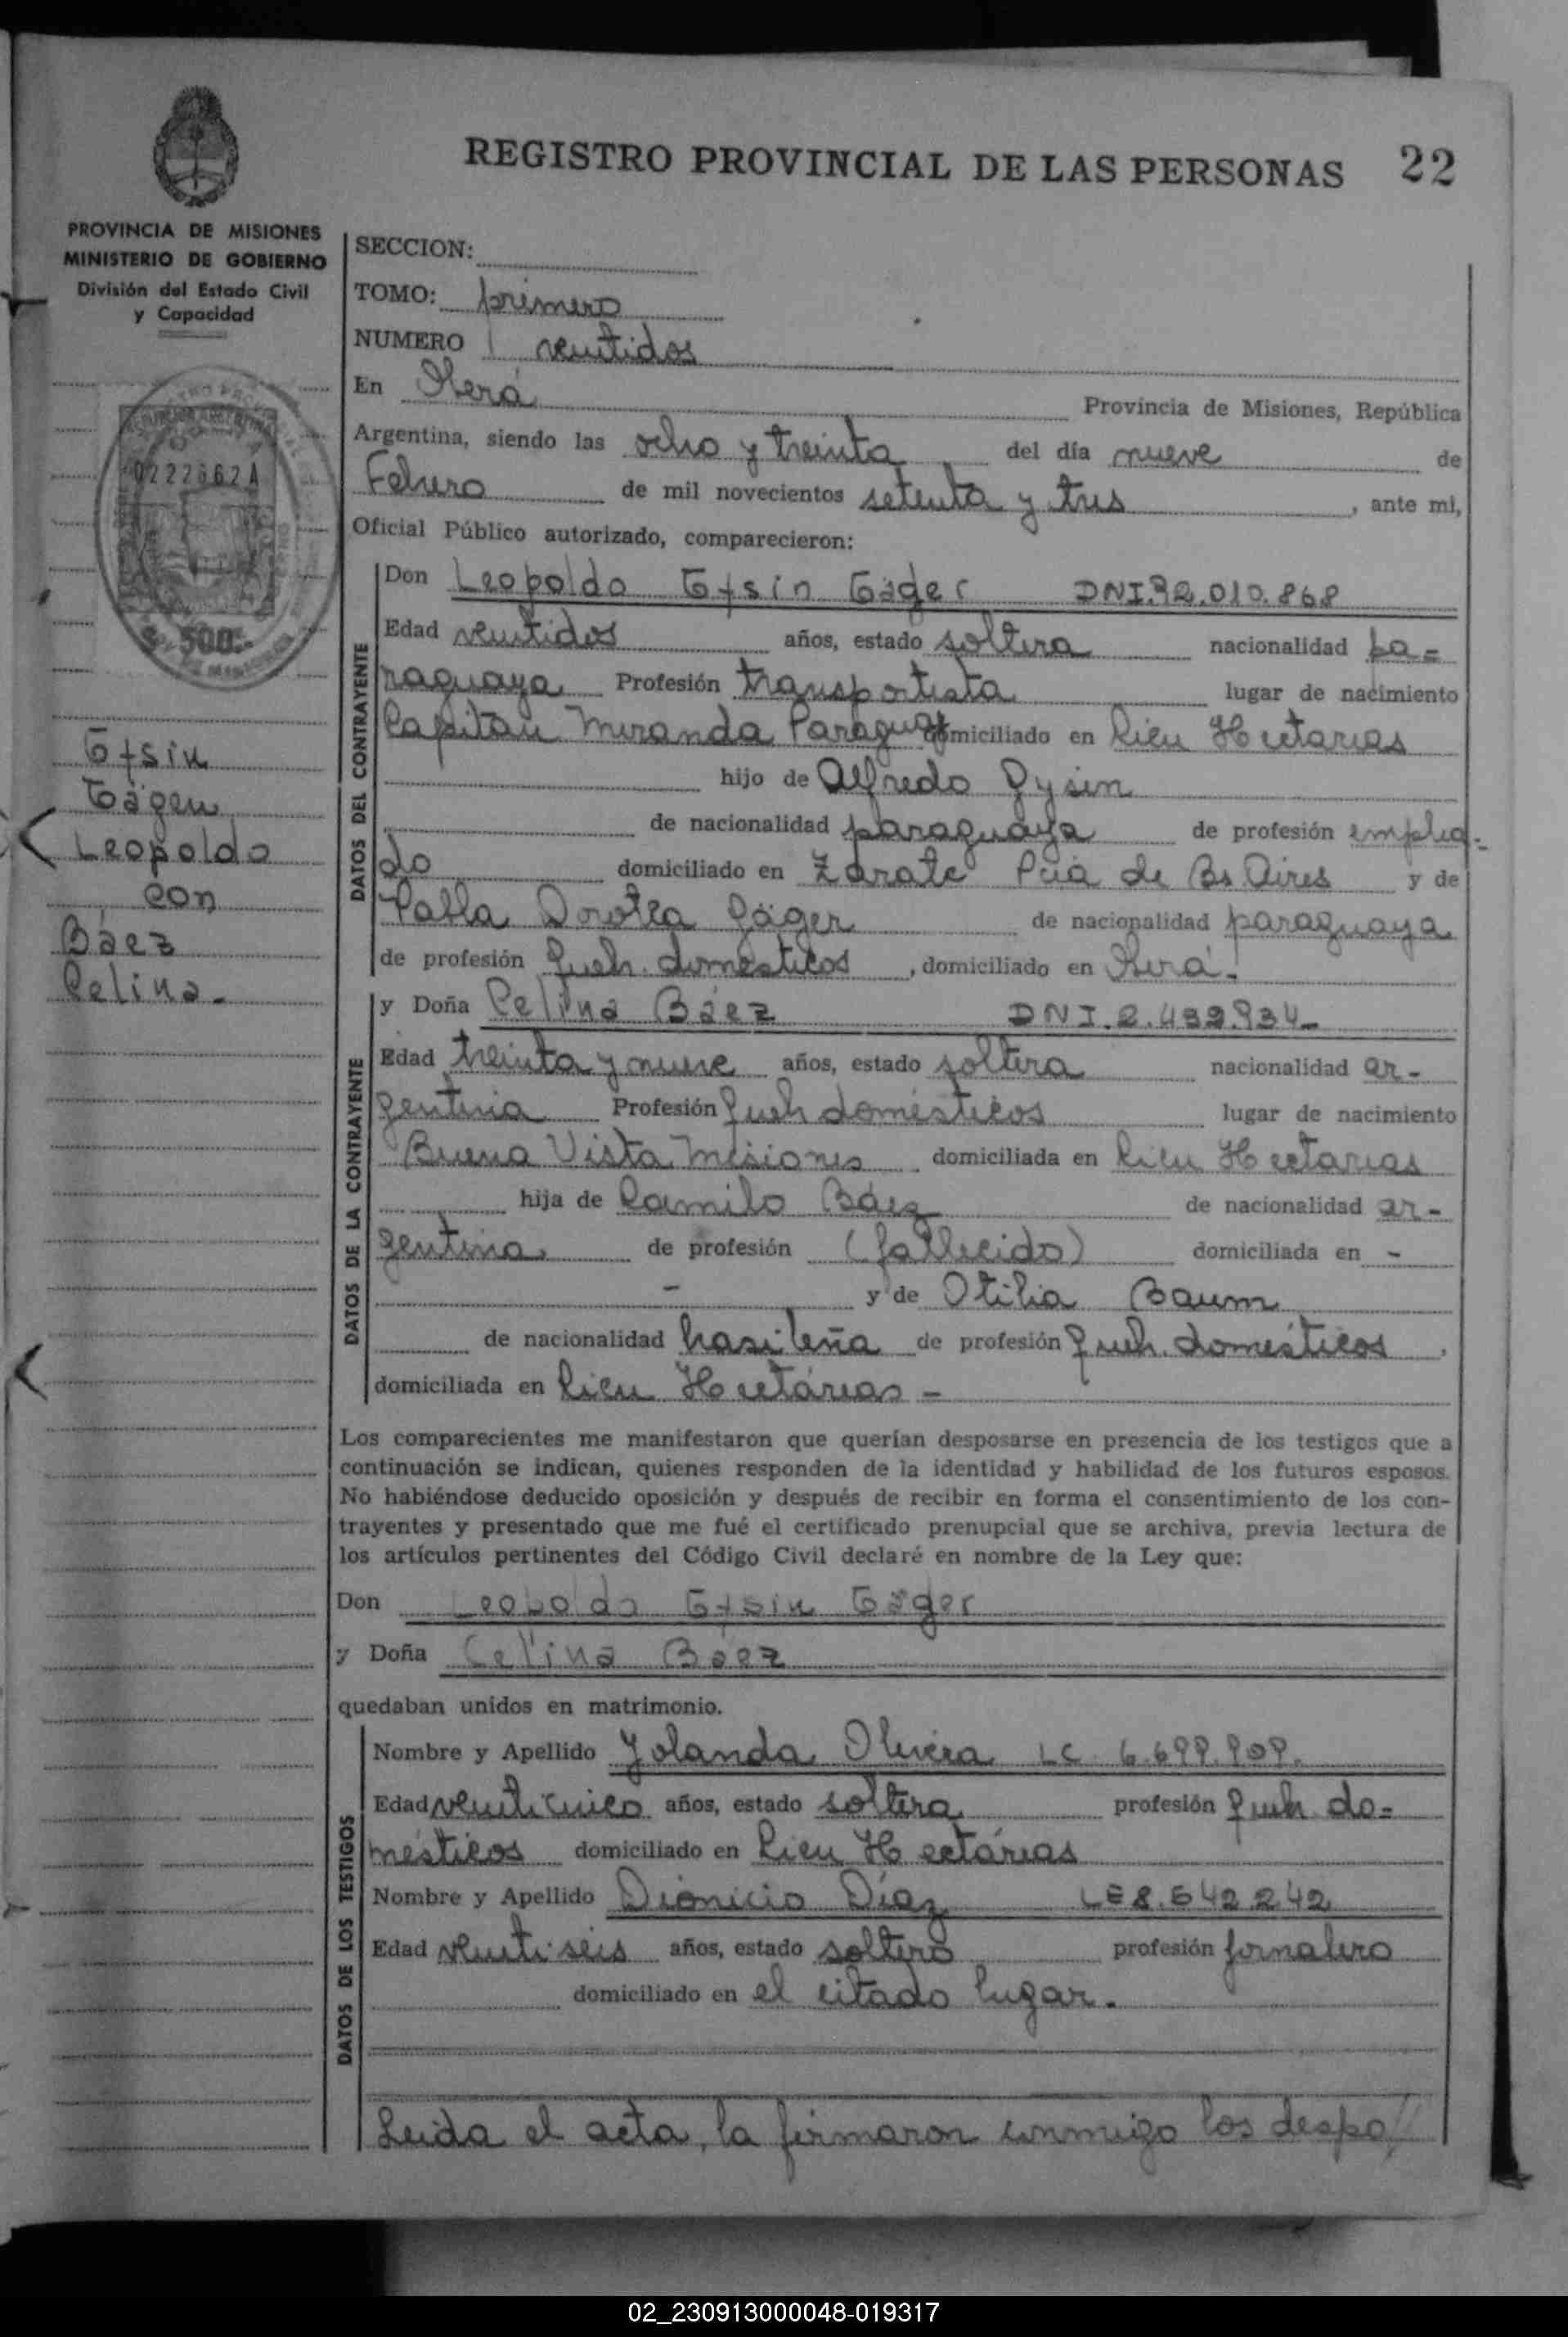 REGISTRO PROVINCIAL DE LAS PERSONAS 22
PROVINCIA DE MISIONES
MINISTERIO DE GOBIERNO
División del Estado Civil
y Capacidad
0222662A
$ 500.-
Gysin
Gägen
Leopoldo
con
Báez
Celina.-
SECCION:
TOMO: primero
NUMERO veintidos
En Oberá Provincia de Misiones, República
Argentina, siendo las ocho y treinta del día nueve de
Febrero de mil novecientos setenta y tres, ante mi,
Oficial Público autorizado, comparecieron:
DATOS DEL CONTRAYENTE
Don Leopoldo Gysin Gäger DNI.92.010.868
Edad veintidos años, estado soltero nacionalidad pa=
raguaya Profesión transportista lugar de nacimiento
Capitán Miranda Paraguay domiciliado en Cien Hectarias
hijo de Alfredo Gysin
de nacionalidad paraguaya de profesión emplea-
do domiciliado en Zarate Pcia de Bs. Aires y de
Pabla Dorotea Gäger de nacionalidad paraguaya
de profesión queh. domesticos, domiciliado en Oberá.-
DATOS DE LA CONTRAYENTE
y Doña Celina Báez DNI.2.439.934-
Edad treinta y nueve años, estado soltera nacionalidad ar-
gentina Profesión queh domésticos lugar de nacimiento
Buena Vista Misiones domiciliada en Cien Hectarias
hija de Camilo Báez de nacionalidad ar-
gentina de profesión (fallecido) domiciliada en -
- y de Otilia Baum
de nacionalidad brasileña de profesión queh. domésticos,
domiciliada en Cien Hectárias -
Los comparecientes me manifestaron que querían desposarse en presencia de los testigos que a
continuación se indican, quienes responden de la identidad y habilidad de los futuros esposos.
No habiéndose deducido oposición y después de recibir en forma el consentimiento de los con-
trayentes y presentado que me fué el certificado prenupcial que se archiva, previa lectura de
los artículos pertinentes del Código Civil declaré en nombre de la Ley que:
Don Leopoldo Gysin Gäger
y Doña Celina Báez
quedaban unidos en matrimonio.
DATOS DE LOS TESTIGOS
Nombre y Apellido Yolanda Olivera LC 6.699.909.
Edad veinticinco años, estado soltera profesión queh. do=
mésticos domiciliado en Cien Hectárias
Nombre y Apellido Dionicio Díaz LE 8.542.242
Edad veintiseis años, estado soltero profesión jornalero
domiciliado en el citado lugar.
Leida el acta, la firmaron conmigo los despo//
02_230913000048-019317